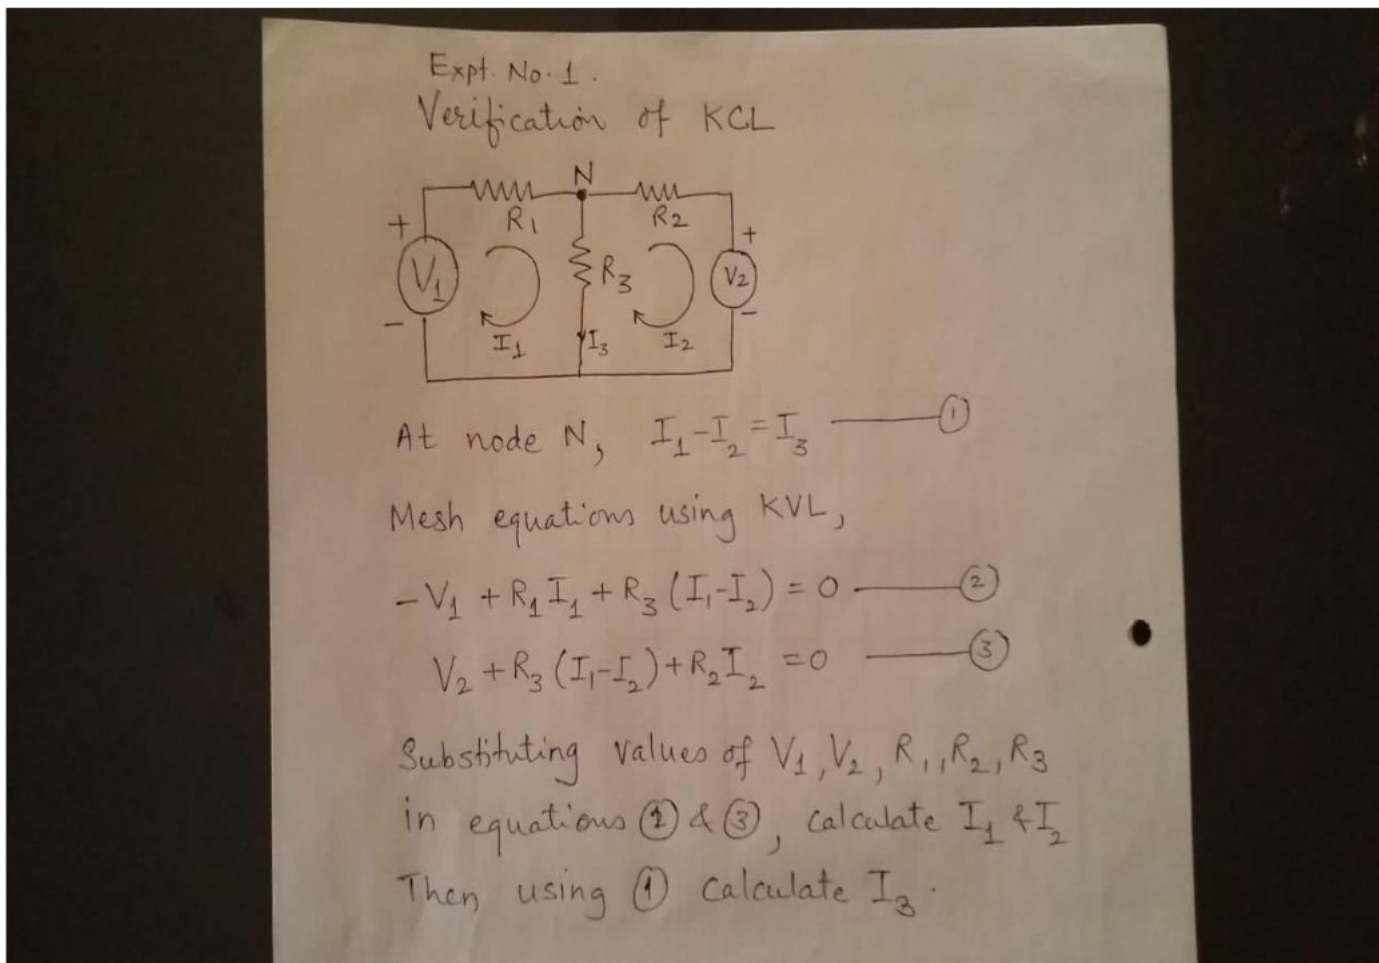 Expt. No. 1.
Verification of KCL
N
R1 R2
+ +
V1 R3 V2
- -
I1 I3 I2
At node N, I1-I2=I3 ——— ①
Mesh equations using KVL,
-V1 + R1 I1 + R3 (I1-I2) = 0 ——— ②
V2 + R3 (I1-I2) + R2 I2 = 0 ——— ③
Substituting values of V1, V2, R1, R2, R3
in equations ② & ③, calculate I1 & I2
Then using ① calculate I3.